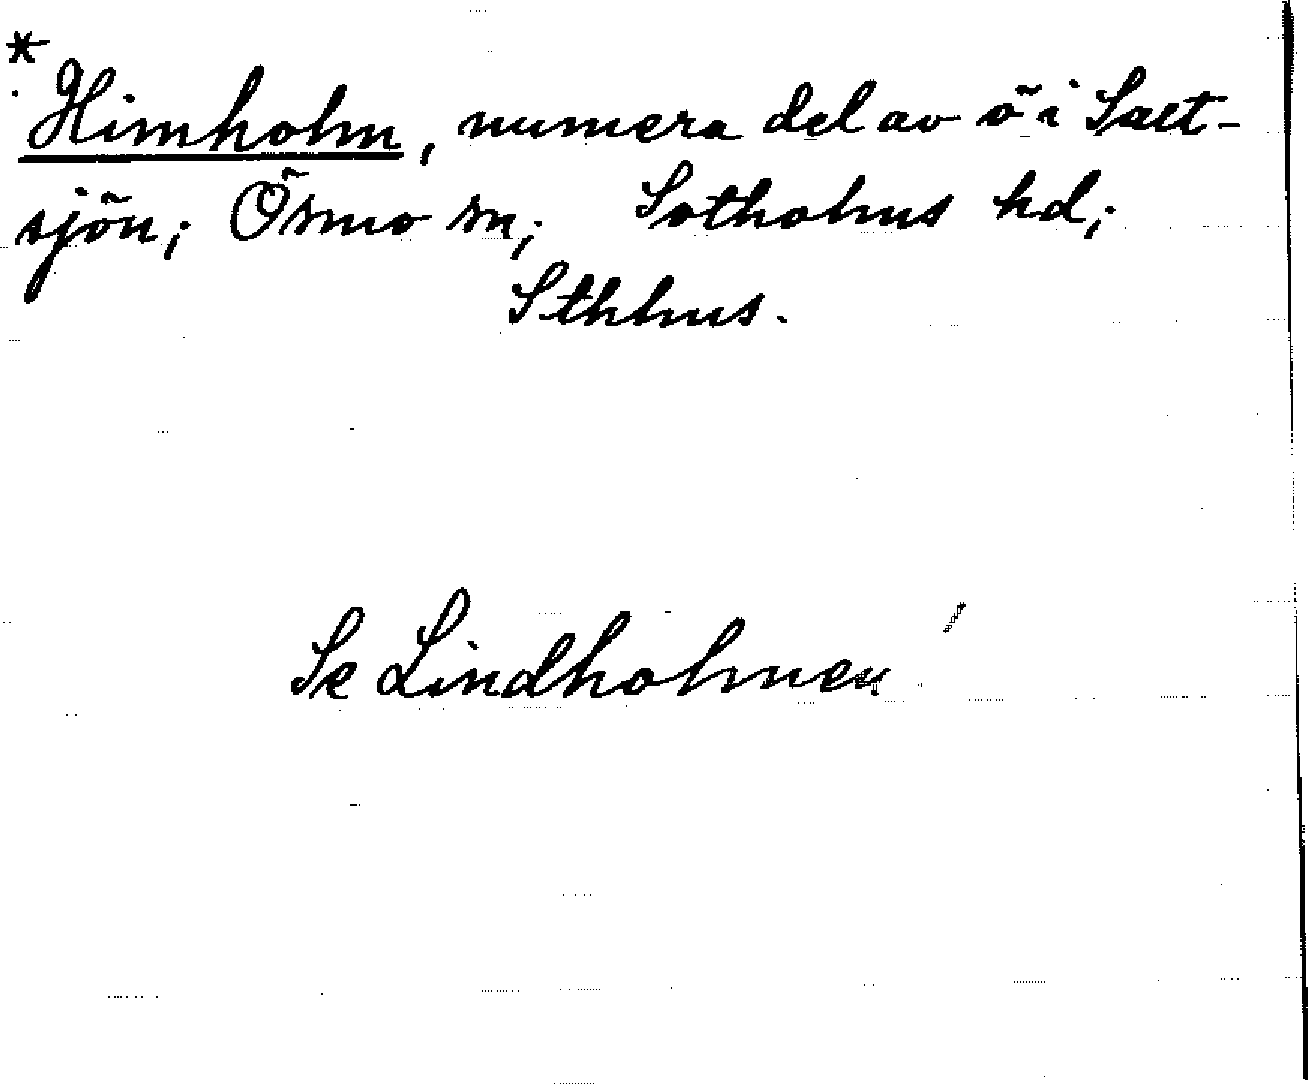 *
Himholm, numera del av ö i Salt-
sjön; Ösmo sn; Sotholms hd;
Sthlms.
Se Lindholmen